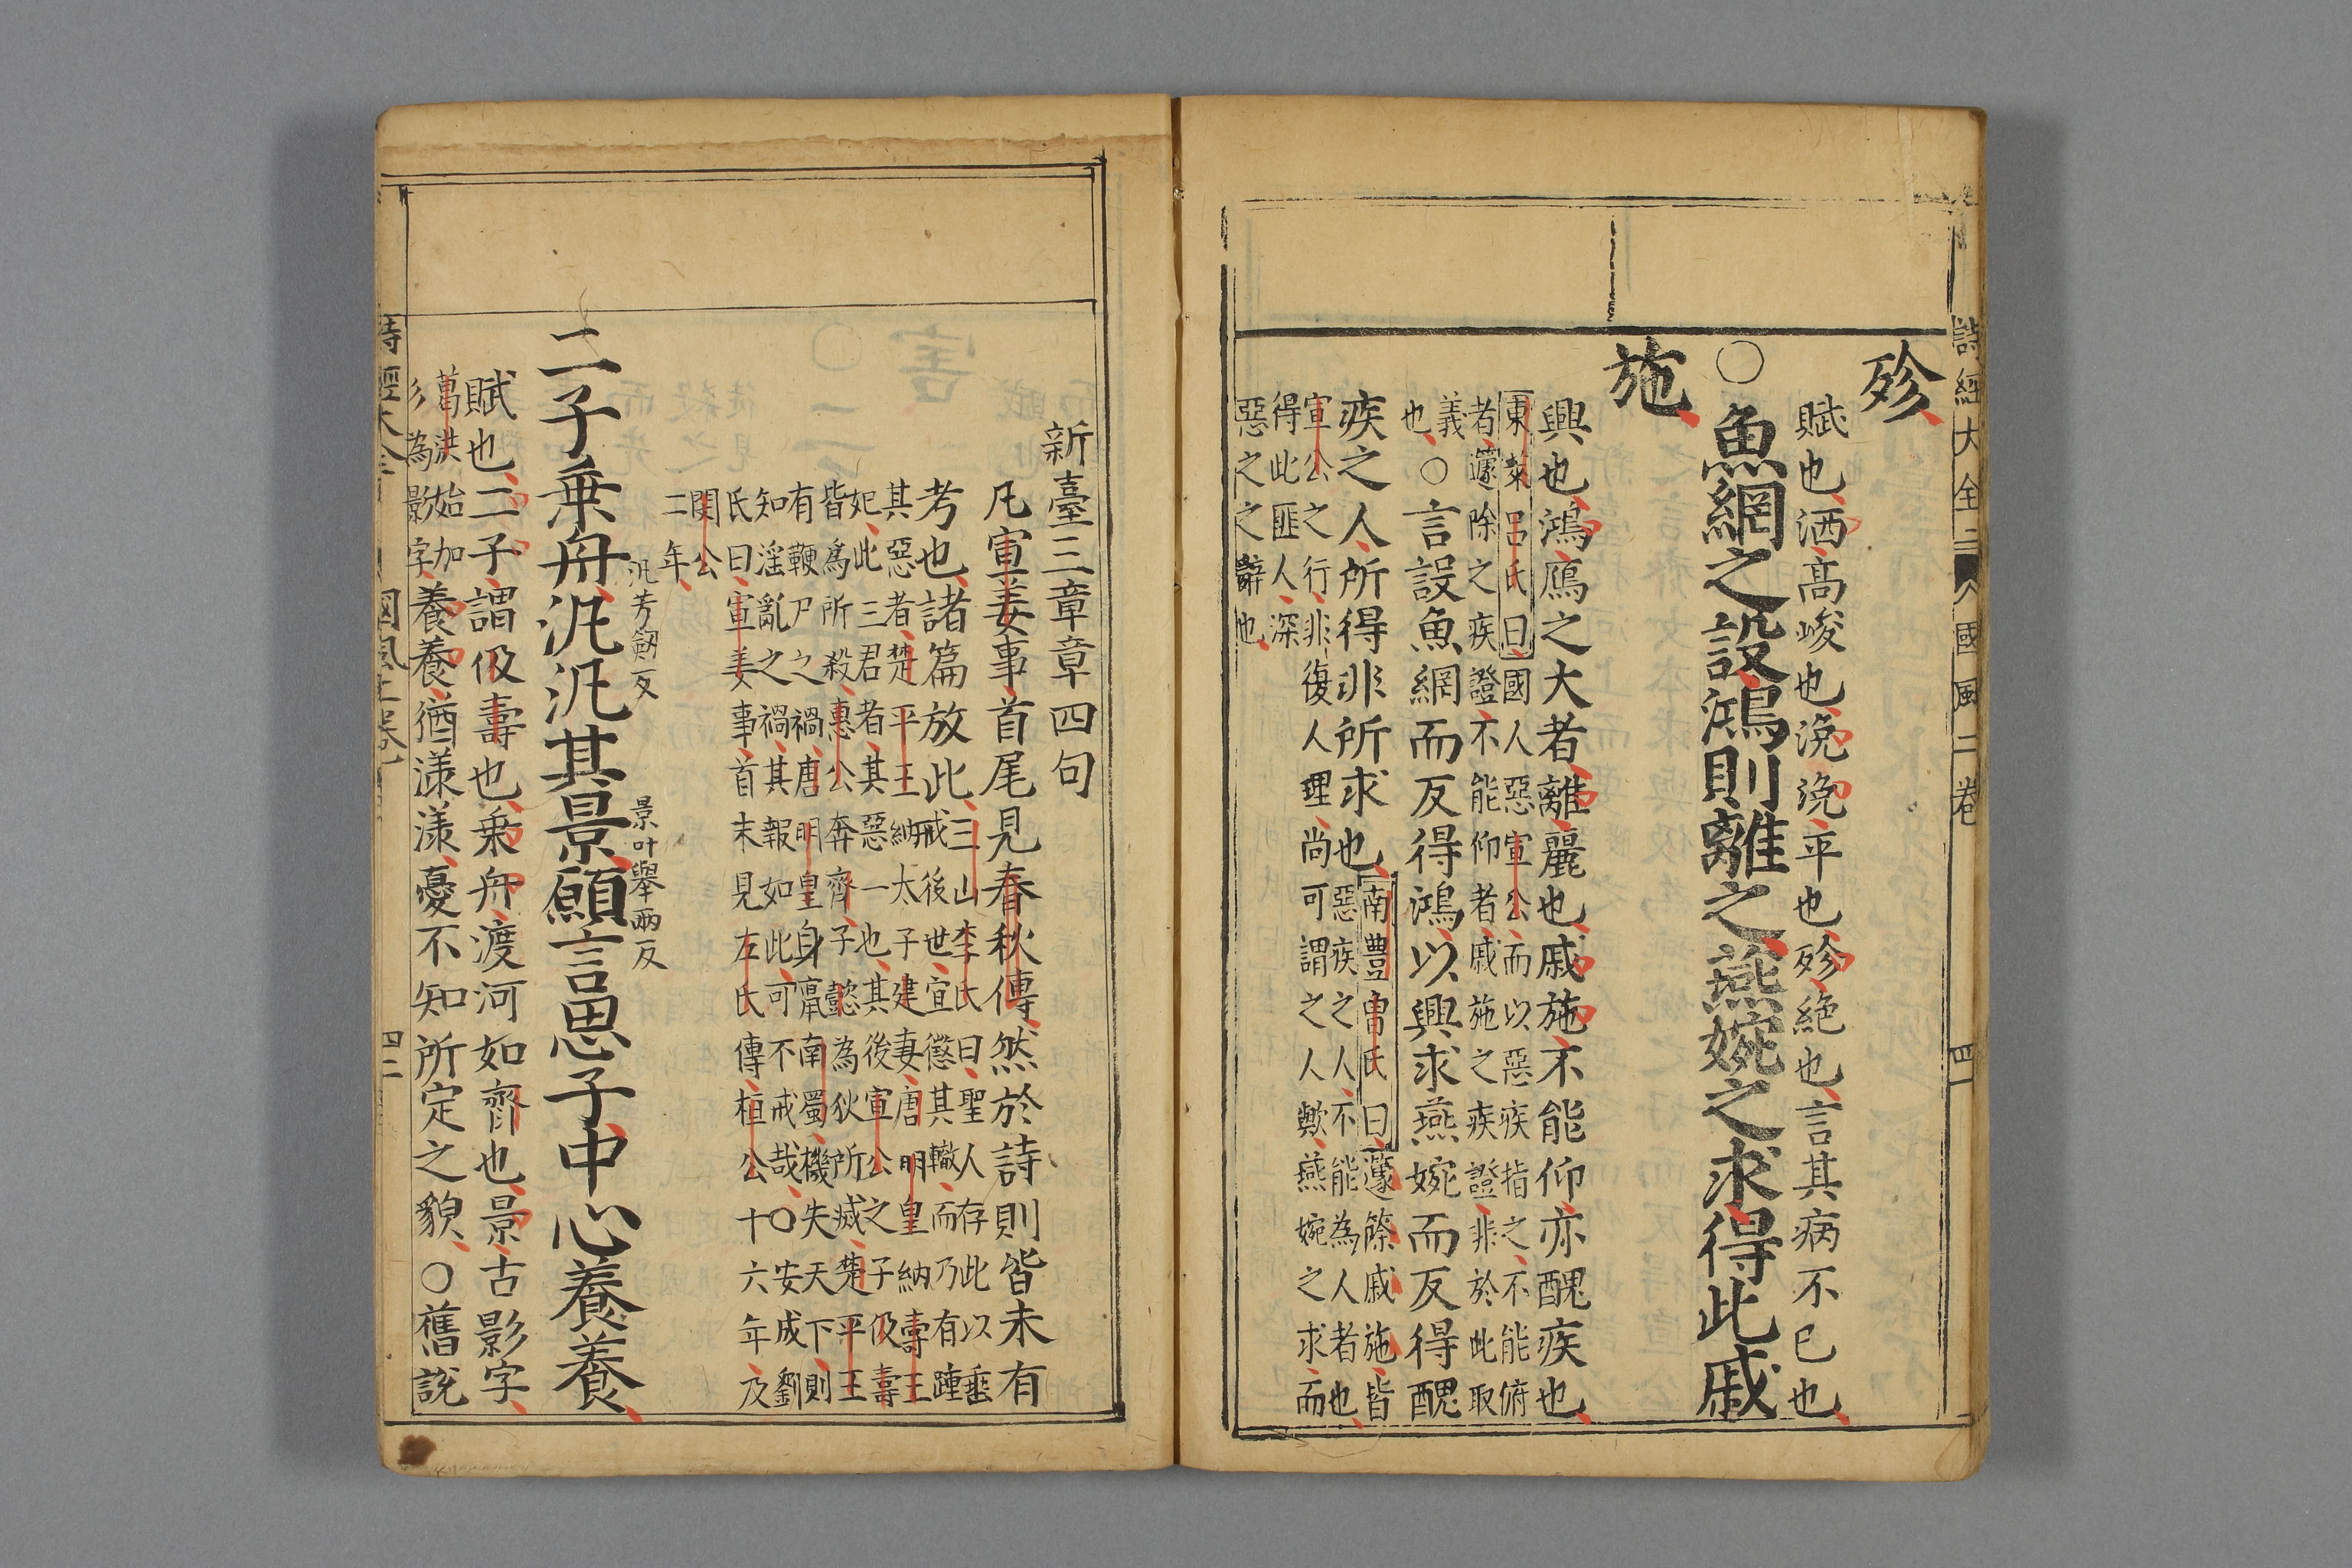 詩經大全二 國風二卷 四一
殄
賦也洒高峻也浼浼平也殄絶也言其病不已也
○魚網之設鴻則離之燕婉之求得此戚
施
興也鴻鴈之大者離麗也戚施不能仰亦醜疾也
東萊呂氏曰國人惡宣公而以惡疾指之不能俯
者籧除之疾證不能仰者戚施之疾證非於此取
義
也○言設魚網而反得鴻以興求燕婉而反得醜
疾之人所得非所求也南豊曽氏曰籧篨戚施皆
惡疾之人不能為人者也
宣公之行非復人理尚可謂之人歟燕婉之求而
得此匪人深
惡之之辭也
新臺三章章四句
凡宣姜事首尾見春秋傳然於詩則皆未有
考也諸篇放此三山李氏曰聖人存此以垂
戒後世宣懲其轍而乃有踵
其惡者楚平王納太子建妻唐明皇納壽王
妃此三君者其惡一也其後宣公之子伋壽
皆爲所殺惠公奔齊子懿為狄所烕楚平王
有鞭尸之禍唐明皇身竄南蜀機失天下則
知淫亂之禍其報如此可不戒哉○安成劉
氏曰宣姜事首末見左氏傳桓公十六年及
閔公
二年
二子乗舟汎汎其景願言思子中心養養
汎芳劒反
景叶舉兩反
賦也二子謂伋壽也乗舟渡河如齊也景古影字
葛洪始加
彡為影字養養猶漾漾憂不知所定之貌○舊說
詩經大全 國風二卷 四二